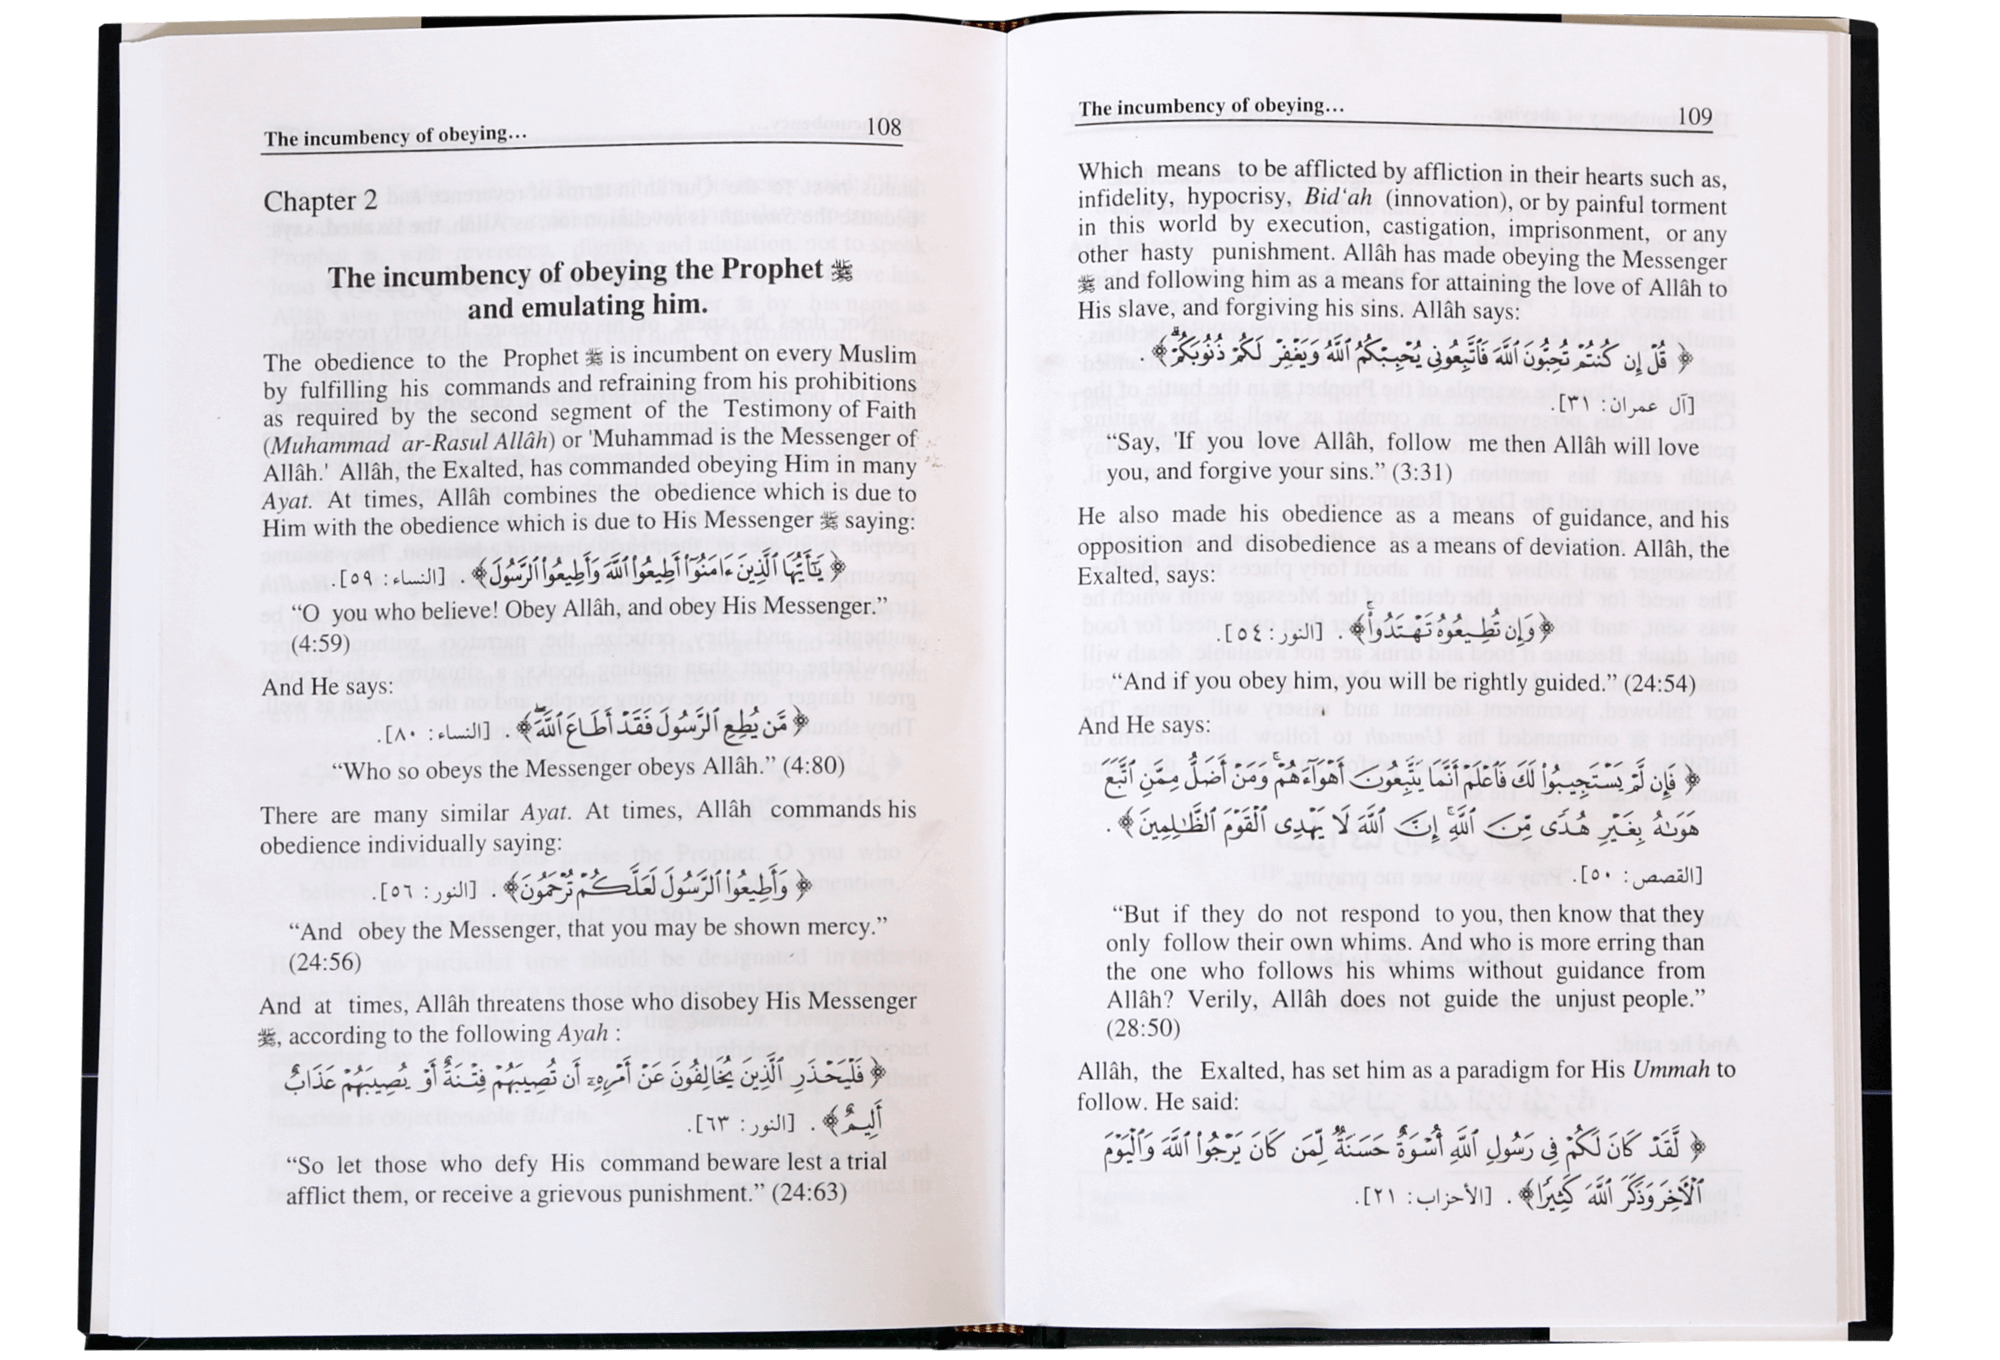 The incumbency of obeying... 108
Chapter 2
The incumbency of obeying the Prophet ﷺ
and emulating him.
The obedience to the Prophet ﷺ is incumbent on every Muslim
by fulfilling his commands and refraining from his prohibitions
as required by the second segment of the Testimony of Faith
(Muhammad ar-Rasul Allâh) or 'Muhammad is the Messenger of
Allâh.' Allâh, the Exalted, has commanded obeying Him in many
Ayat. At times, Allâh combines the obedience which is due to
Him with the obedience which is due to His Messenger ﷺ saying:
﴿ يَٰٓأَيُّهَا ٱلَّذِينَ ءَامَنُوٓا۟ أَطِيعُوا۟ ٱللَّهَ وَأَطِيعُوا۟ ٱلرَّسُولَ﴾ [النساء: ٥٩].
“O you who believe! Obey Allâh, and obey His Messenger.”
(4:59)
And He says:
﴿ مَّن يُطِعِ ٱلرَّسُولَ فَقَدْ أَطَاعَ ٱللَّهَۖ﴾. [النساء: ٨٠].
“Who so obeys the Messenger obeys Allâh.” (4:80)
There are many similar Ayat. At times, Allâh commands his
obedience individually saying:
﴿ وَأَطِيعُوا۟ ٱلرَّسُولَ لَعَلَّكُمْ تُرْحَمُونَ﴾. [النور: ٥٦].
“And obey the Messenger, that you may be shown mercy.”
(24:56)
And at times, Allâh threatens those who disobey His Messenger
ﷺ, according to the following Ayah :
﴿ فَلْيَحْذَرِ ٱلَّذِينَ يُخَالِفُونَ عَنْ أَمْرِهِۦٓ أَن تُصِيبَهُمْ فِتْنَةٌ أَوْ يُصِيبَهُمْ عَذَابٌ
أَلِيمٌ﴾. [النور: ٦٣].
“So let those who defy His command beware lest a trial
afflict them, or receive a grievous punishment.” (24:63)
The incumbency of obeying... 109
Which means to be afflicted by affliction in their hearts such as,
infidelity, hypocrisy, Bid‘ah (innovation), or by painful torment
in this world by execution, castigation, imprisonment, or any
other hasty punishment. Allâh has made obeying the Messenger
ﷺ and following him as a means for attaining the love of Allâh to
His slave, and forgiving his sins. Allâh says:
﴿ قُلْ إِن كُنتُمْ تُحِبُّونَ ٱللَّهَ فَٱتَّبِعُونِى يُحْبِبْكُمُ ٱللَّهُ وَيَغْفِرْ لَكُمْ ذُنُوبَكُمْۗ﴾.
[آل عمران: ٣١].
“Say, 'If you love Allâh, follow me then Allâh will love
you, and forgive your sins.” (3:31)
He also made his obedience as a means of guidance, and his
opposition and disobedience as a means of deviation. Allâh, the
Exalted, says:
﴿ وَإِن تُطِيعُوهُ تَهْتَدُوا۟ۚ﴾. [النور: ٥٤].
“And if you obey him, you will be rightly guided.” (24:54)
And He says:
﴿ فَإِن لَّمْ يَسْتَجِيبُوا۟ لَكَ فَٱعْلَمْ أَنَّمَا يَتَّبِعُونَ أَهْوَآءَهُمْۚ وَمَنْ أَضَلُّ مِمَّنِ ٱتَّبَعَ
هَوَىٰهُ بِغَيْرِ هُدًى مِّنَ ٱللَّهِۚ إِنَّ ٱللَّهَ لَا يَهْدِى ٱلْقَوْمَ ٱلظَّٰلِمِينَ﴾.
[القصص: ٥٠].
“But if they do not respond to you, then know that they
only follow their own whims. And who is more erring than
the one who follows his whims without guidance from
Allâh? Verily, Allâh does not guide the unjust people.”
(28:50)
Allâh, the Exalted, has set him as a paradigm for His Ummah to
follow. He said:
﴿ لَّقَدْ كَانَ لَكُمْ فِى رَسُولِ ٱللَّهِ أُسْوَةٌ حَسَنَةٌ لِّمَن كَانَ يَرْجُوا۟ ٱللَّهَ وَٱلْيَوْمَ
ٱلْءَاخِرَ وَذَكَرَ ٱللَّهَ كَثِيرًا﴾. [الأحزاب: ٢١].